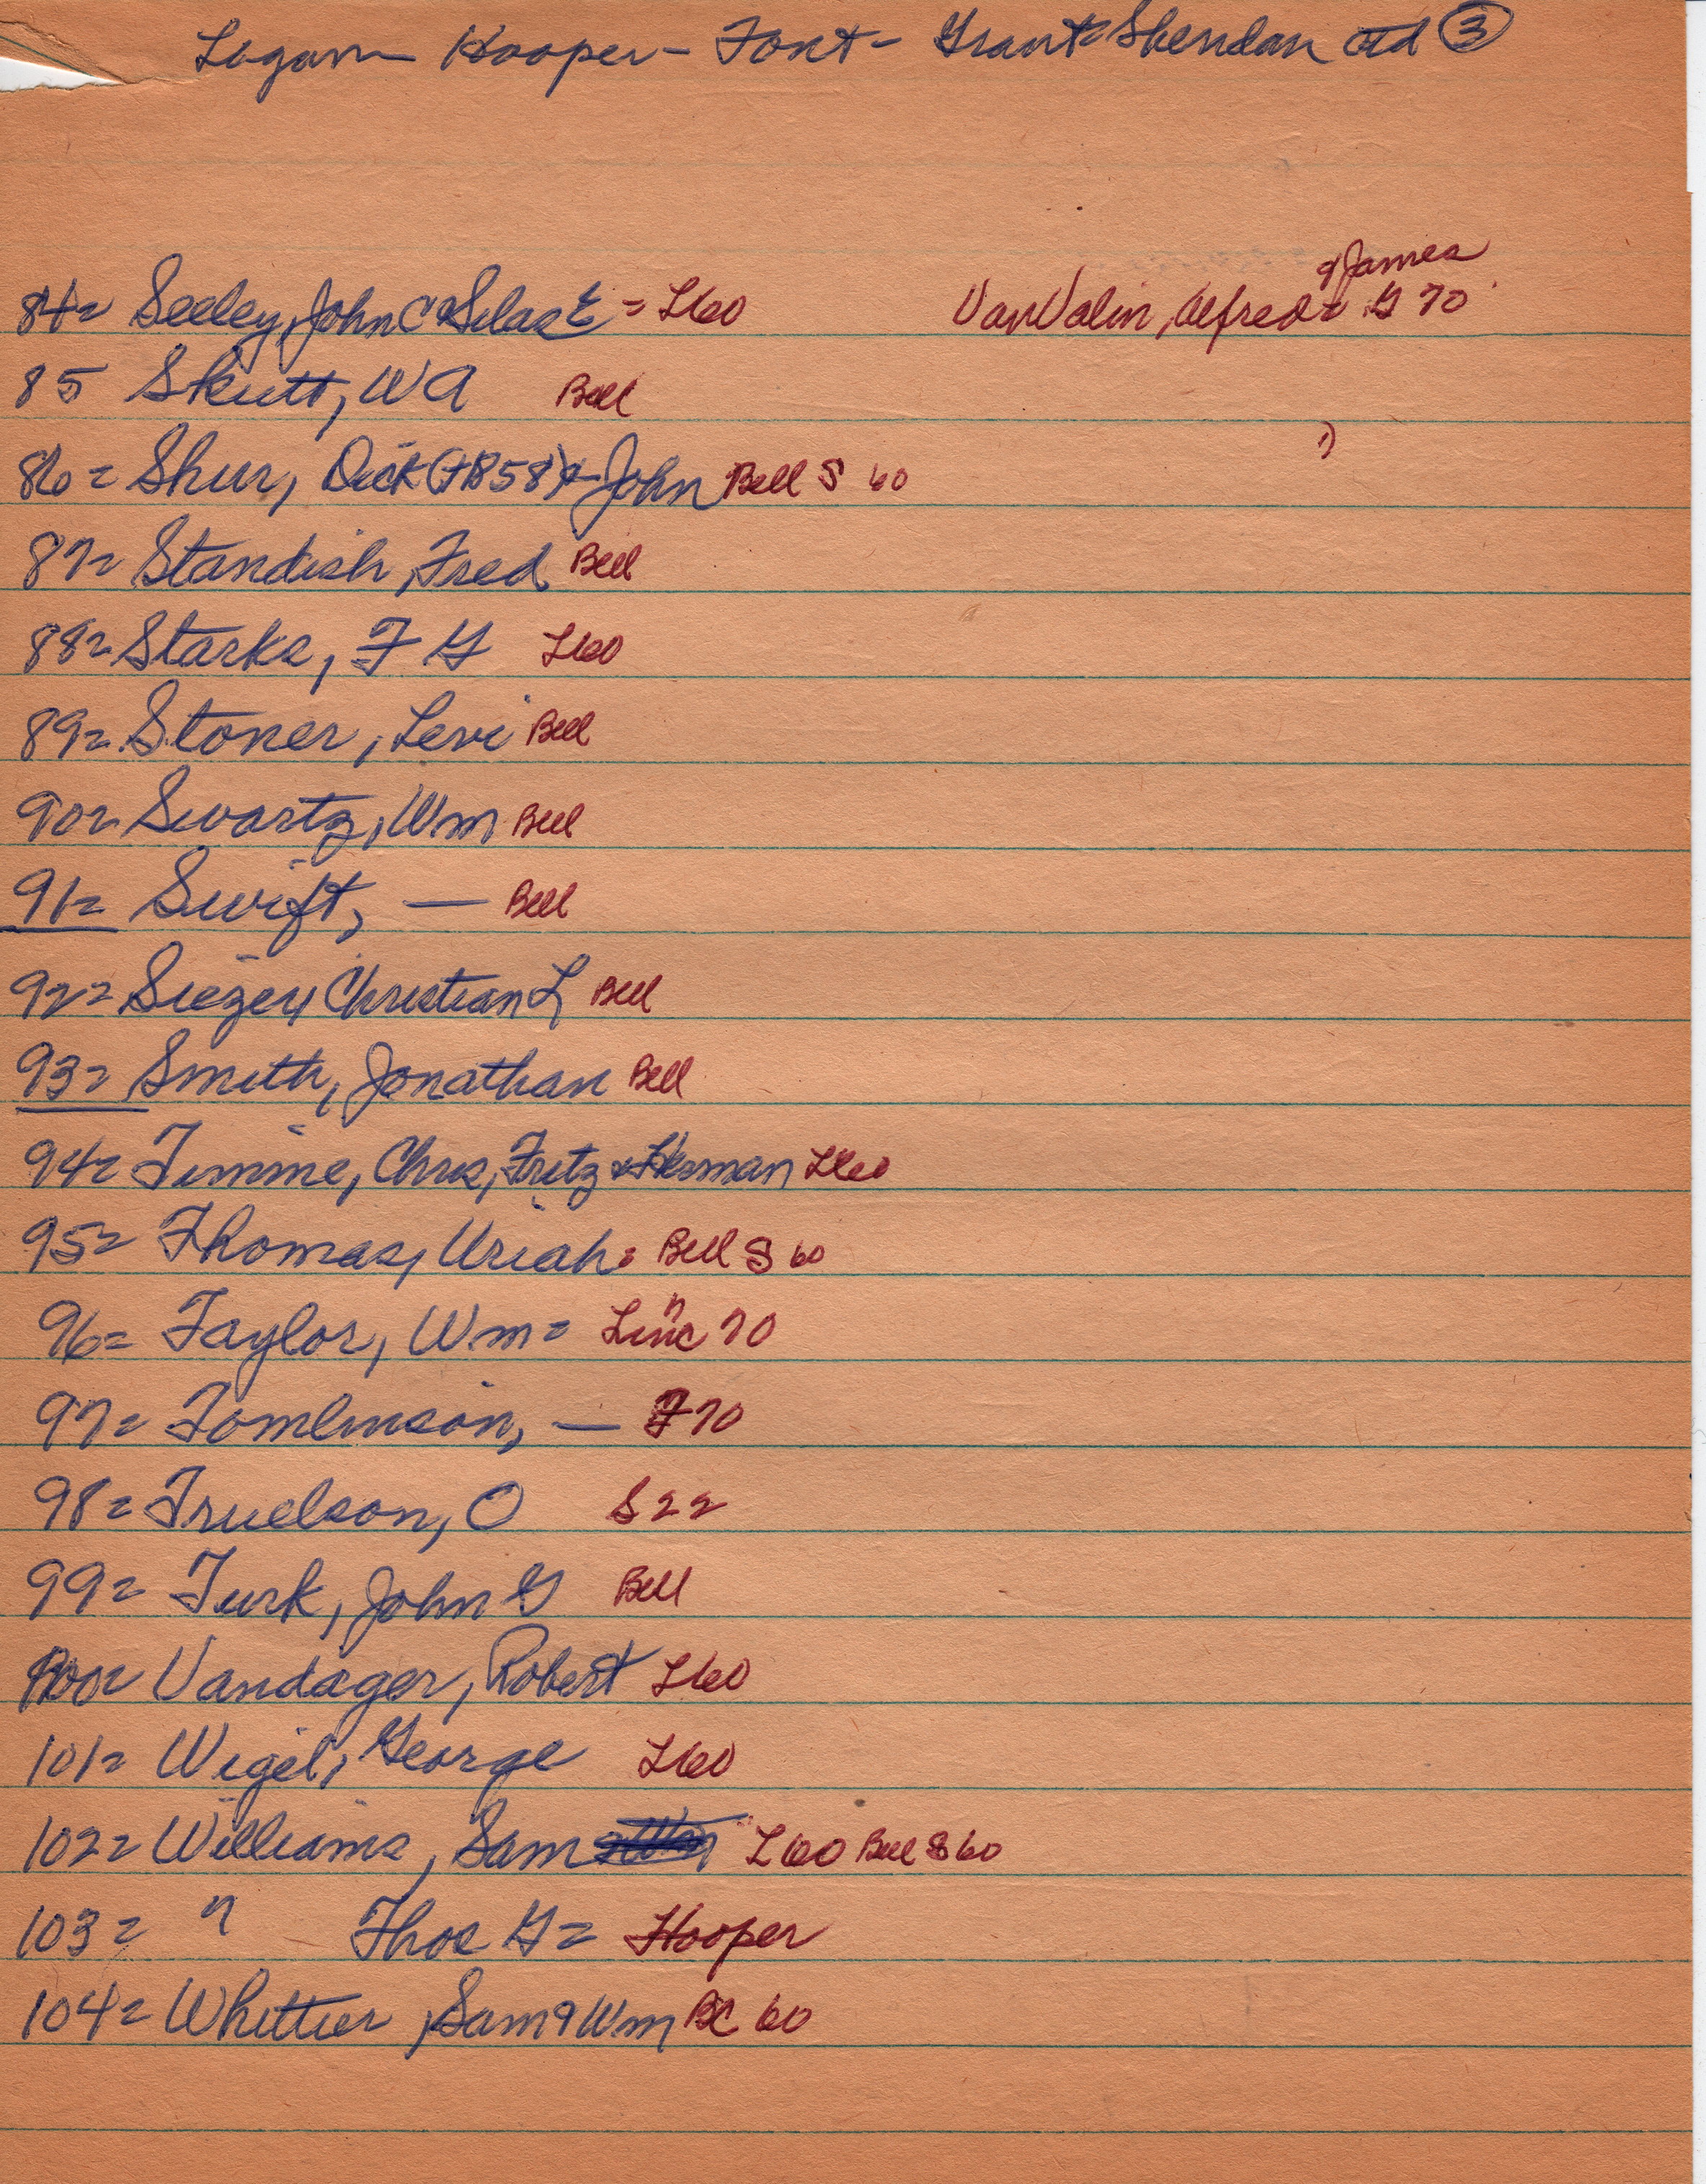 Logan Hooper - Font - Grant Sheridan ctd ③
& James
84= Seeley, John C & Silas E = L60 VanValin, Alfred = G 70
85 Skutt, W A Bell
86= Shur, Dick (FB58) & John Bell S 60
87= Standish, Fred Bell
88= Starks, F G L60
89= Stoner, Levi Bell
90= Swartz, Wm Bell
91= Swift, — Bell
92= Siezer, Christian L Bell
93= Smith, Jonathan Bell
94= Timme, Chris, Fritz & Herman L60
95= Thomas, Uriah = Bell S 60
96= Taylor, Wm = Linc 70
97= Tomlinson, — F70
98= Truelson, O S 22
99= Turk, John G Bell
100= Vandager, Robert L60
101= Wigel, George L60
102= Williams, Sam L60 Bell S 60
103= " Thos G = Hooper
104= Whittier, Sam & Wm BC 60